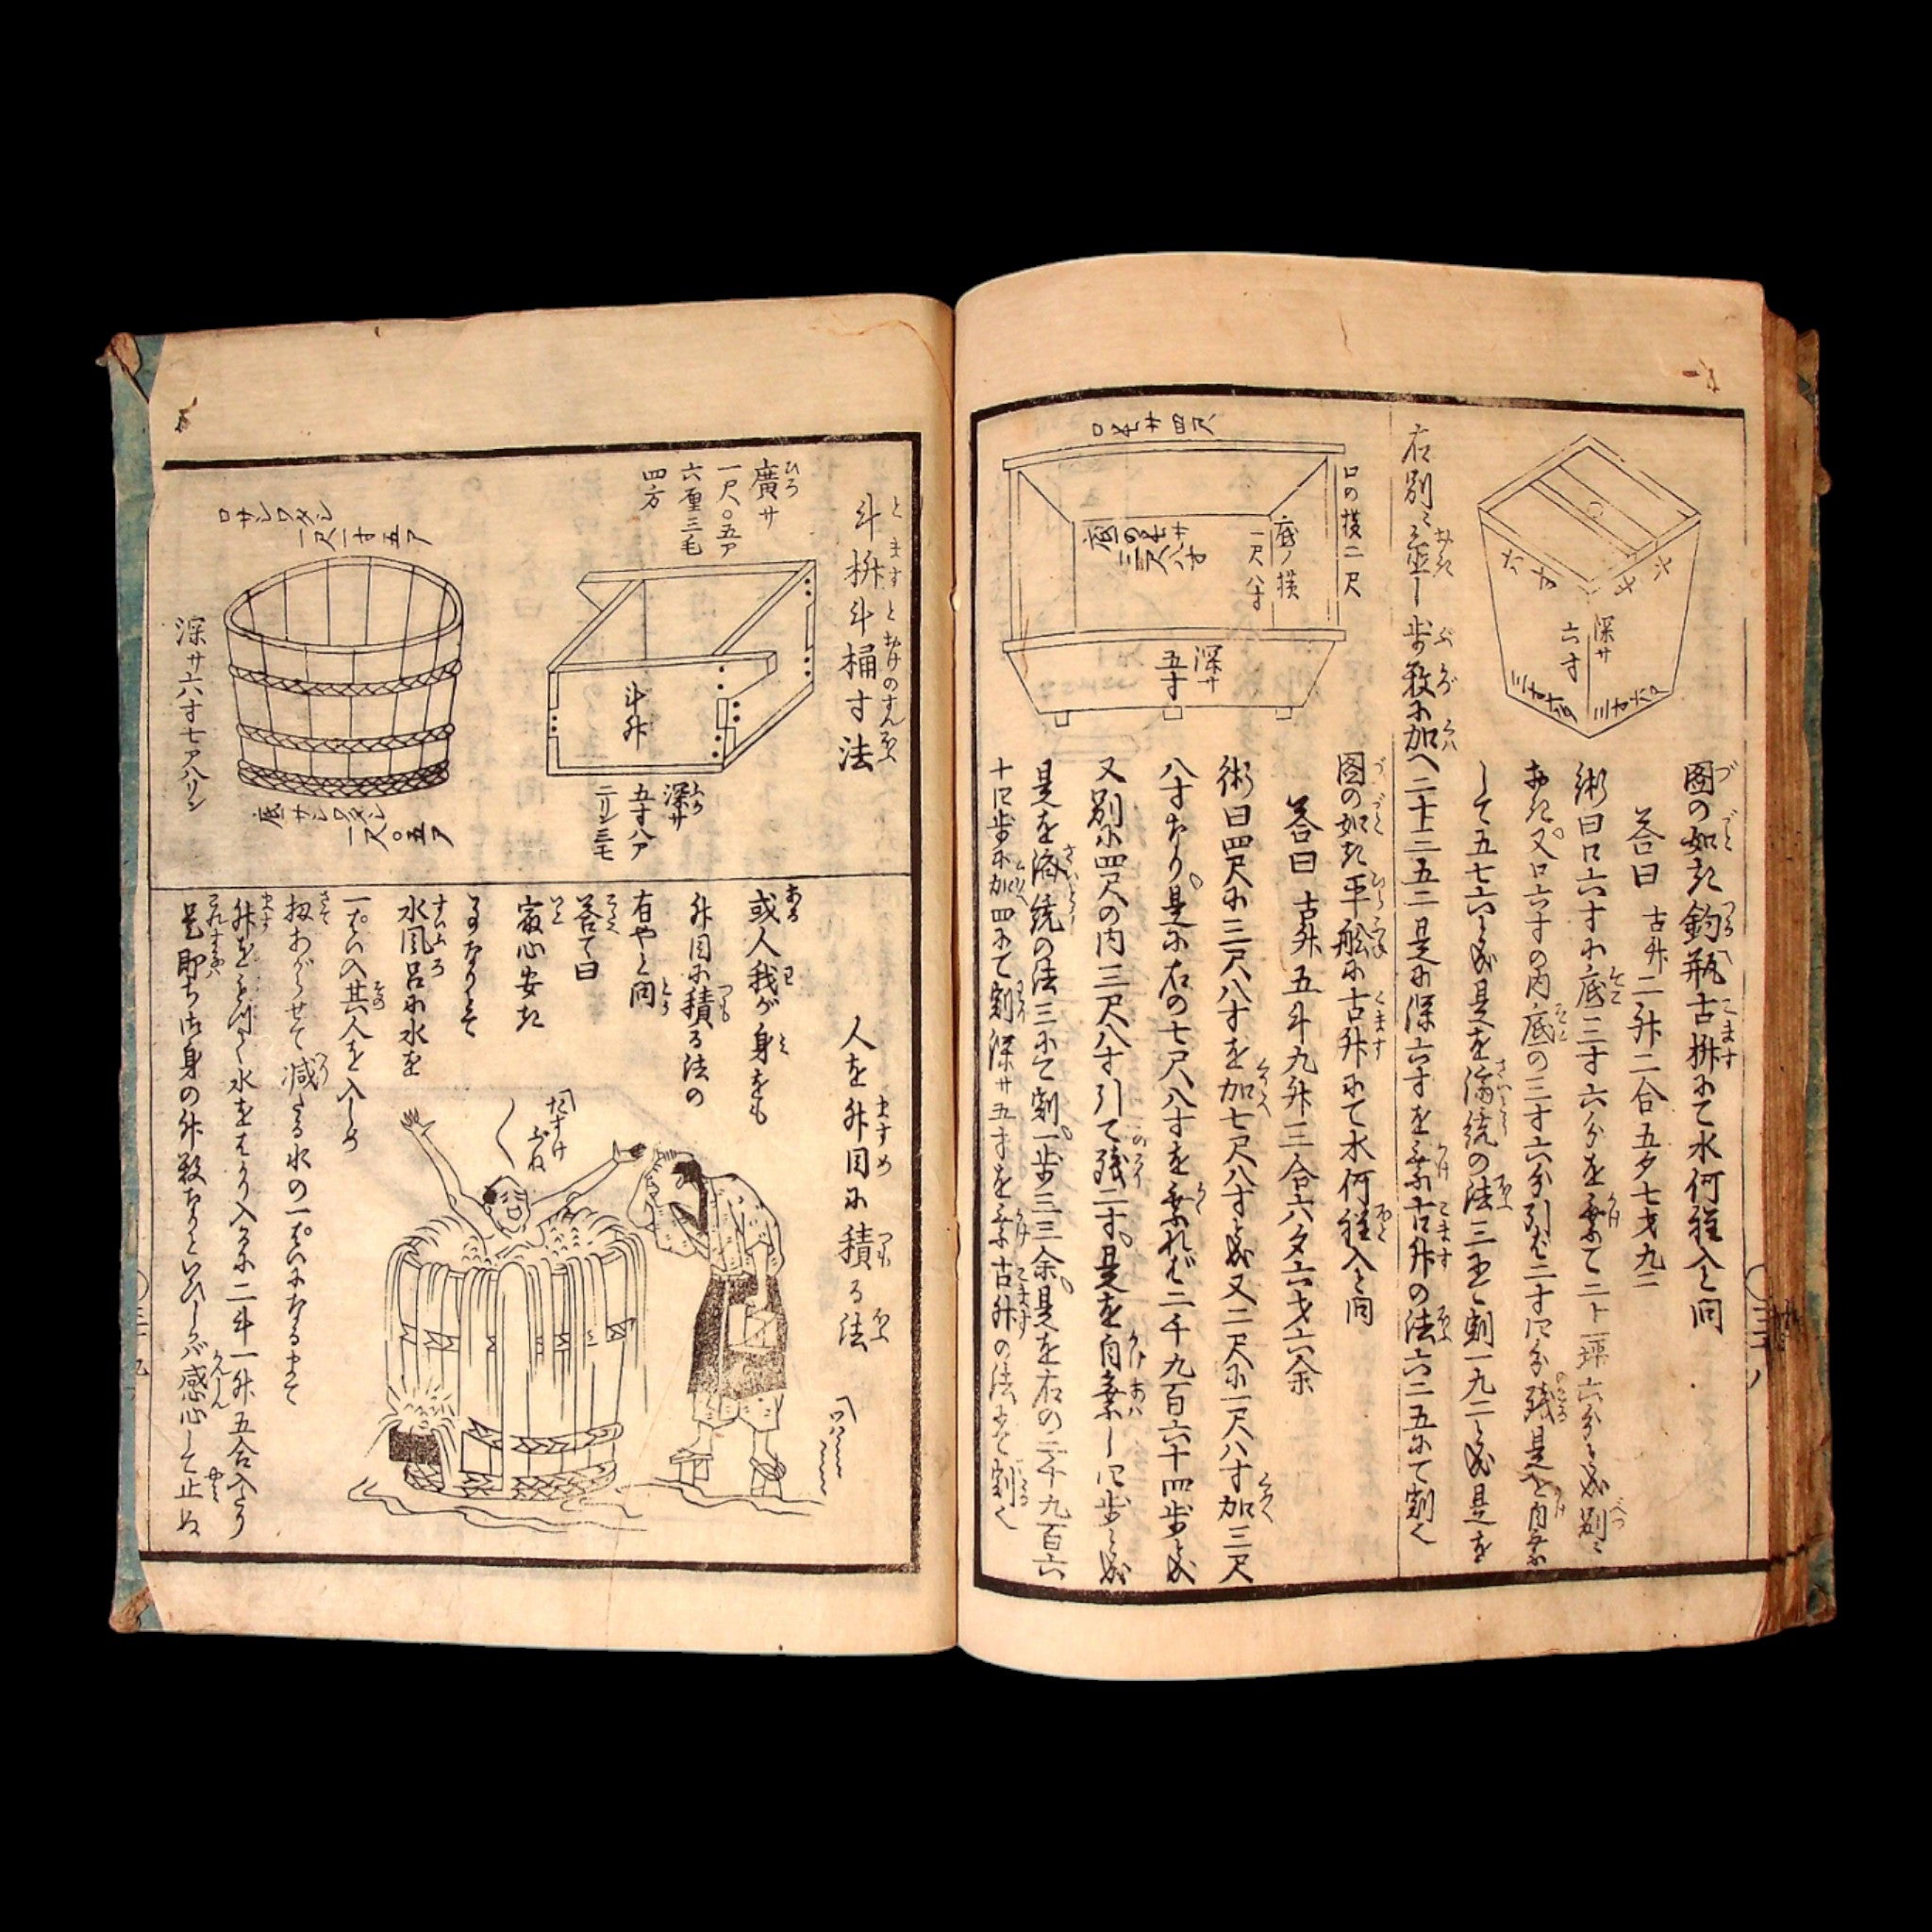 六寸
六寸
深サ
六寸
三寸六分
三寸六分
圖の如き釣瓶古枡にて水何程入と問
答曰 古升二升二合五夕七才九二
術曰口六寸に底三寸六分を乗て二十一坪六分と成別ニ
して五七六と成是を
右別ニ置し歩数に加へ二十三五二是に深六寸を乗古升の法六二五にて割く
口の横二尺
底ノ横
一尺八寸
深サ
五寸
圖の如き平舩に古升にて水何程入と問
答曰 古升五斗九升三合六夕六才六余
術曰四尺に三尺八寸を加七尺八寸と成又二尺に一尺八寸加三尺
八寸なり是に右の七尺八寸を乗れば二千九百六十四歩と成
又別に四尺の内三尺八寸引て残二寸是を自乗し四歩と成
の法三にて割一歩三三余是を右の二千九百六
十四歩に加四にて割深サ五寸を乗古升の法にて割く
斗枡斗桶寸法
廣サ
一尺〇五ア
六厘三毛
四方
斗升
深サ
五寸八ア
二リン三毛
口サシワタシ
一尺一寸五ア
深サ六寸七ア八リン
底サシワタシ
一尺〇五ア
人を升目に積る法
或人我が身をも
升目に積る法の
有やと問
答て曰
最心安き
事なりとて
水風呂に水を
一ぱい入其人を入しめ
扨あがらせて減たる水の一ぱいになるまて
升をもつて水をはかり入るに二斗一升五合入たり
是即ち御身の升数なりといひしが感心して止ぬ